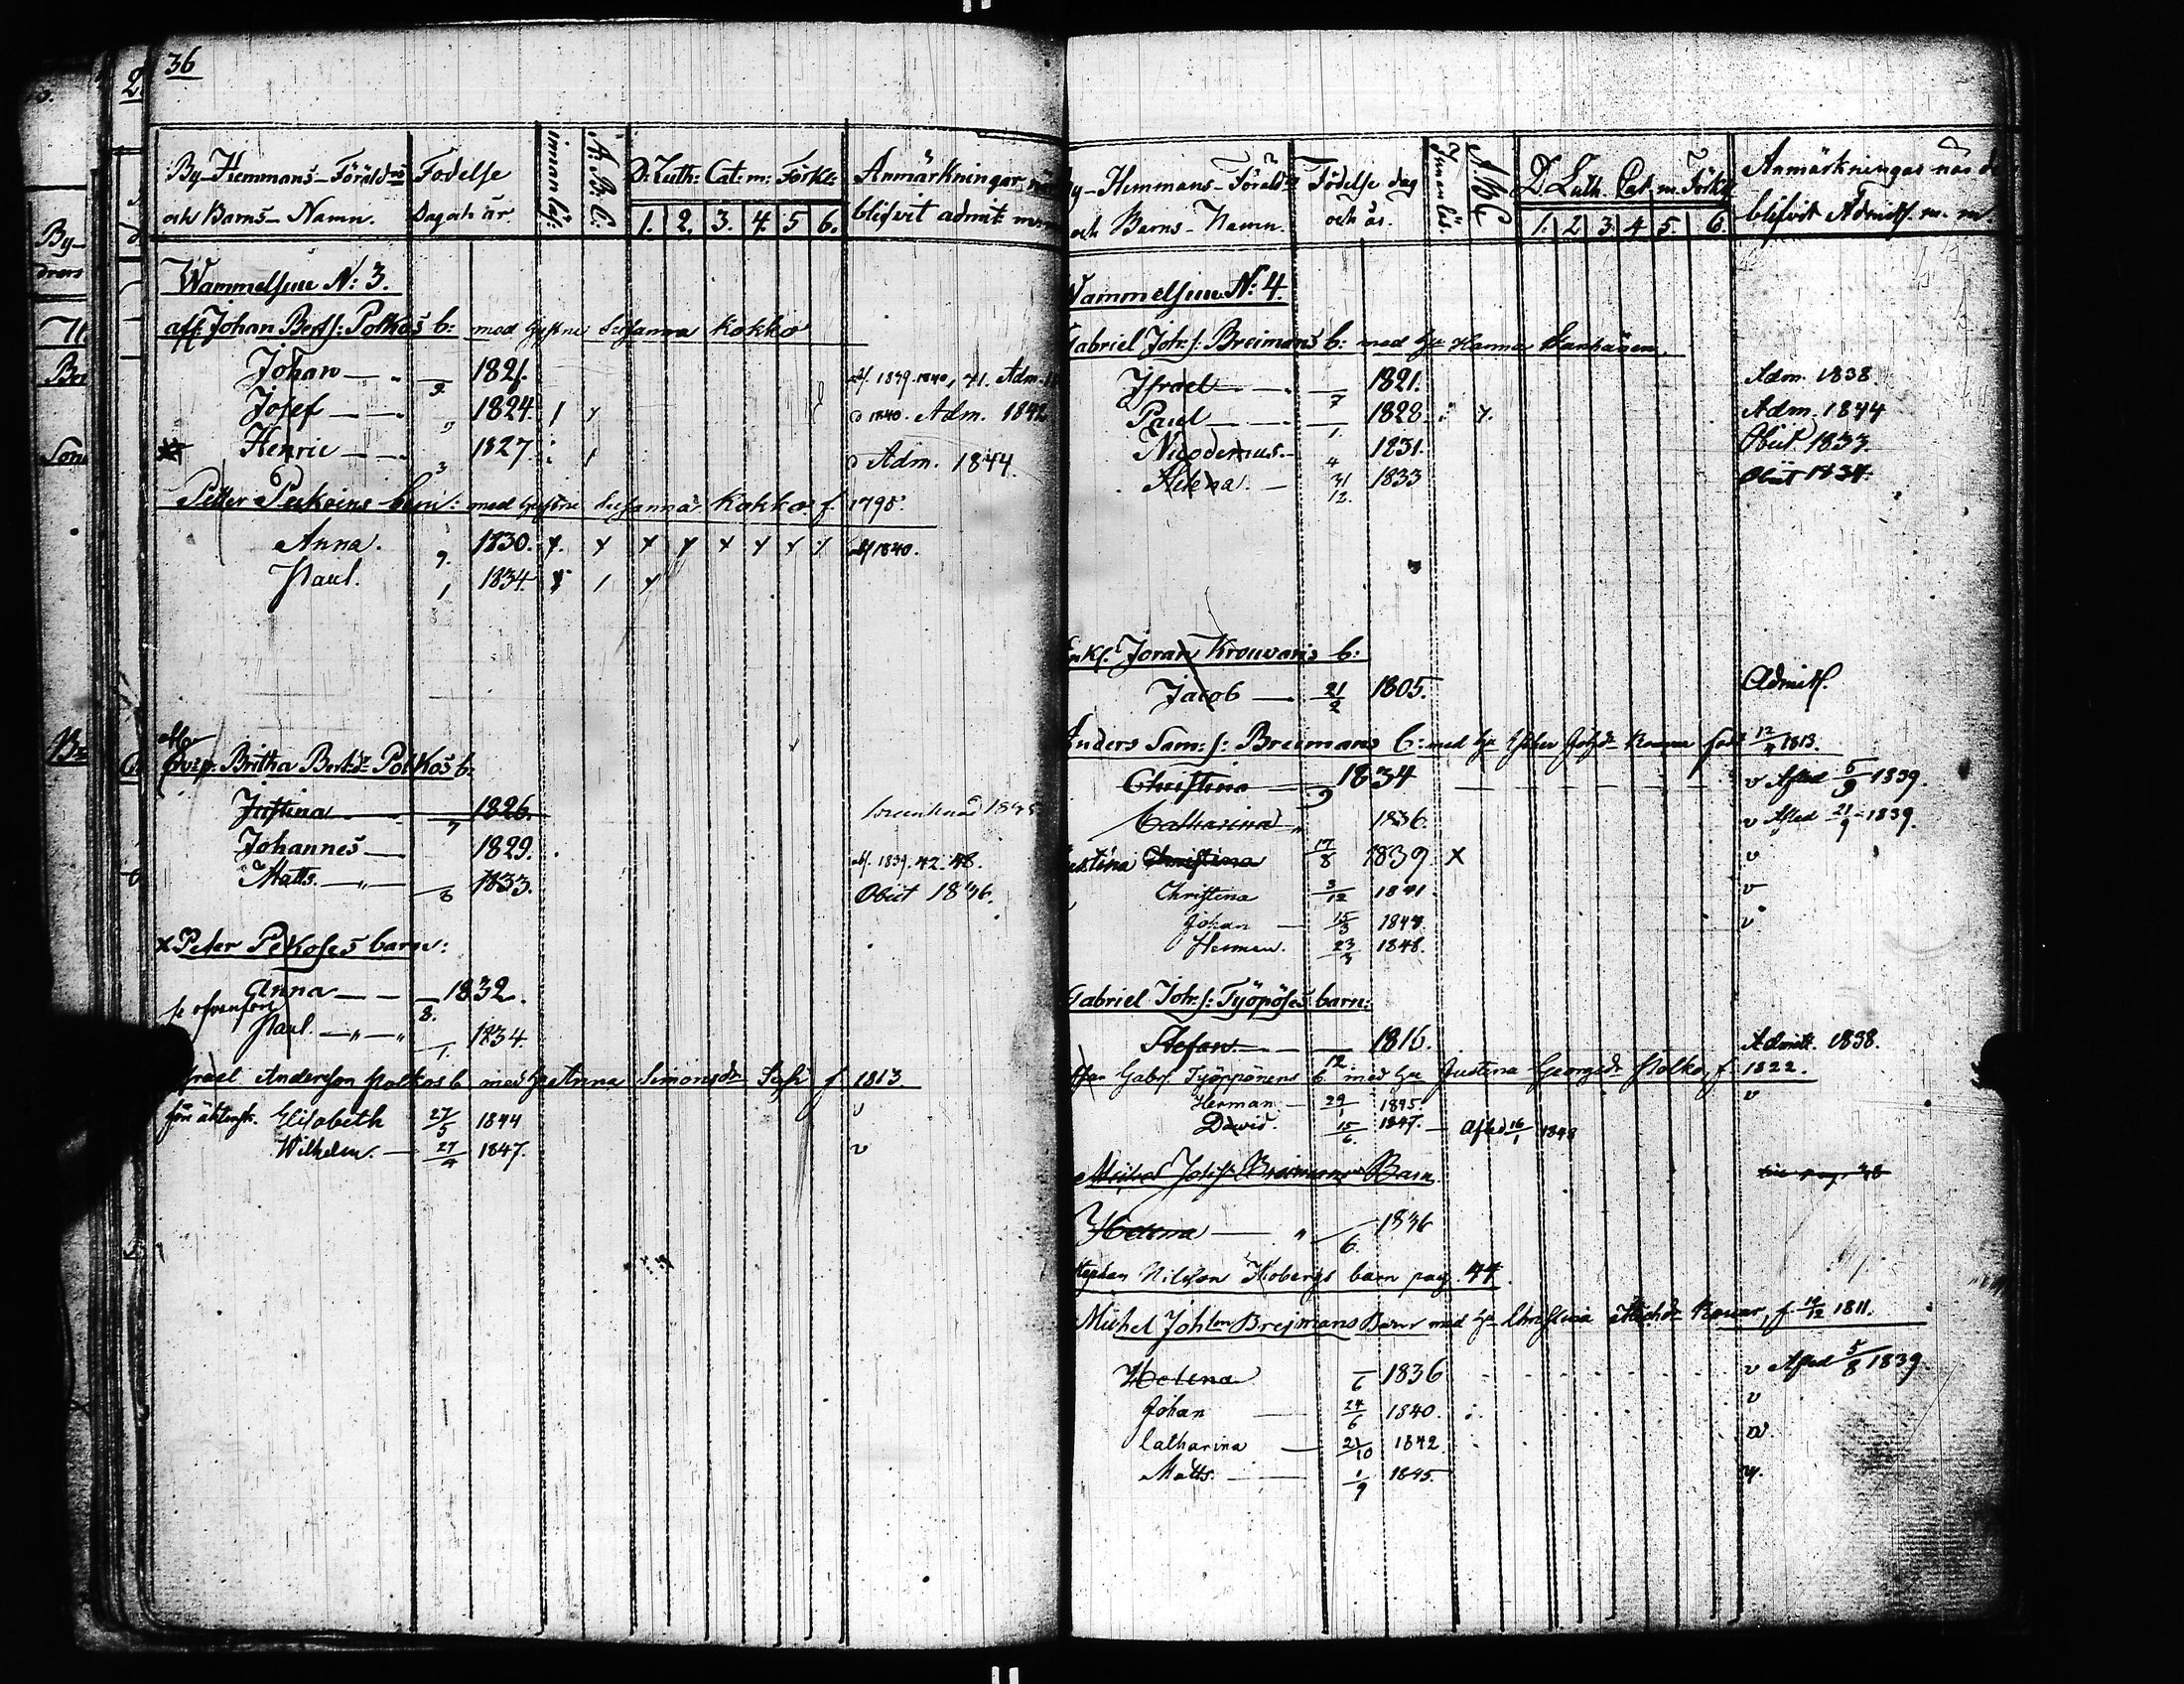 36
By-Hemmans-Föräldrs
och Barns-Namn.
Födelse
Dag och år
innan läs:
A: B: C:
D: Luth: Cat: m: Förkl:
1. 2. 3. 4. 5 6.
Anmärkningar när
blifvit admit: m.m
Wammelsuu N: 3.
aff. Johan Bertss: Polkos b: med hustru Susanna Kokko
Johan 2 1821. abs. 1839. 1840, 41. Adm.
Josef 1824. 1840. Adm. 1842
Henric 3 1827. Adm. 1844.
Petter Pekoins barn: med hustru Susanna Kokko f. 1795.
Anna. 9. 1830. abs 1840.
Paul. 1 1834.
Britha Bertsdr Polkos b:
Justina 7 1826.
Johannes 1829. abs. 1839. 42. 48.
Matts. 6 1833. Obiit 1836.
x Peter Pekoses barn:
Anna 8. 1832.
se ofvanföre
Paul. 1. 1834.
Israel Andersson Polkos b med hu Anna Simonsdr f. 1813.
före äktensk. Elisabeth 27/5 1844 v
Wilhelm. 27/4 1847. v
By-Hemmans-Föräldr
och Barns-Namn.
Födelse dag
och år.
Innan läs.
A. B C
D Luth. Cat. m. Förkl
1. 2 3. 4. 5. 6.
Anmärkningar när de
blifvit Admitt. m. m.
Wammelsuu N: 4.
Gabriel Joh: s: Breimans b: med hu Hanna
Israel 7 1821. Adm. 1838.
Paul 1. 1828. Adm. 1844
Nicodemus. 4 1831. Obiit 1833.
Helena. 31/12. 1833 Obiit 1834.
Enkl. Joran Krouvaris b:
Jacob 21/2 1805. Admitt.
Anders Sam: s: Breimans b: med hu Ester född 12/4 1813.
Christina 9 1834 v Afled 5/9 1839.
Catharina 1836. v Afled 21/9 1839.
Justina Christina 17/8 1839. x v
Christina 3/12 1841. v
Johan 15/3 1844. v
Herman. 23/3 1848.
Gabriel Joh: s: Työpöses barn:
Stefan. 12 1816. Admitt. 1838.
Gabrs. Työppönens b. med hu Justina Georgsdr Polko, f. 1822.
Herman 29/1 1845 v
David. 15/6. 1847. Afled 16/1 1848
Michel Johss Breimans Barn
Helena 6. 1836
Stephan Nilsson Kobergs barn pag. 44.
Michel Johson Brejmans Barn med hu Christina Michdr f. 12/12 1811.
Helena 6 1836 v Afled 5/8 1839.
Johan 24/6 1840. v
Catharina 21/10 1842 v
Matts. 1/9 1845. v.